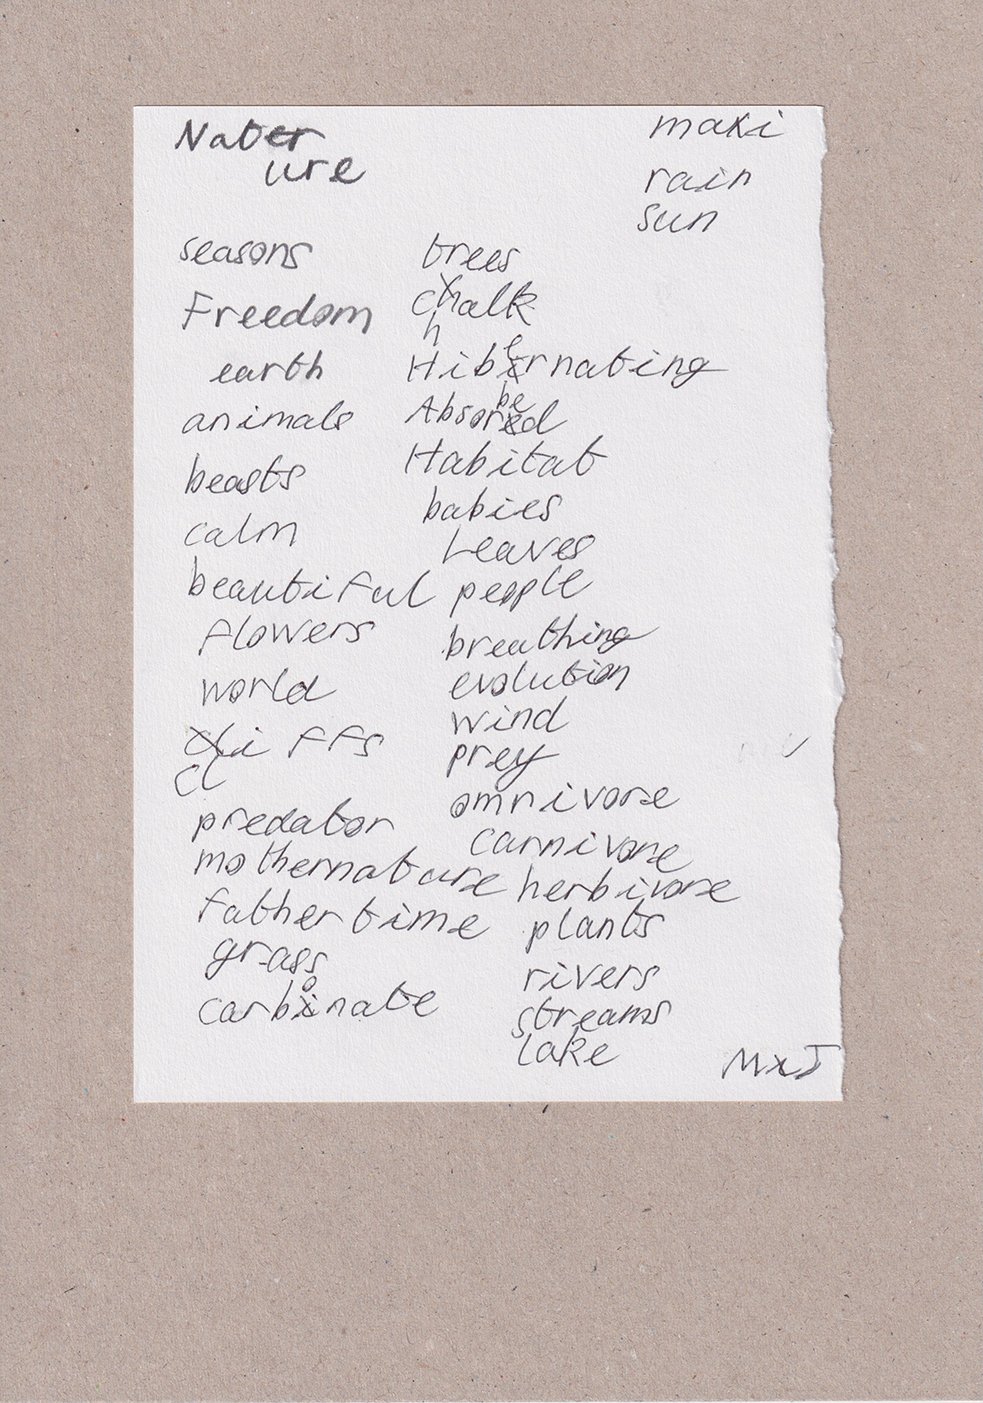 Nater
ure
maxi
rain
sun
seasons
Freedom
earth
animals
beasts
calm
beautiful
flowers
world
cliffs
predator
mothernature
father time
grass
carbonate
trees
chalk
Hibernating
Absorbed
Habitat
babies
Leaves
people
breathing
evolution
wind
prey
omnivore
carnivore
herbivore
plants
rivers
streams
lake
MxJ